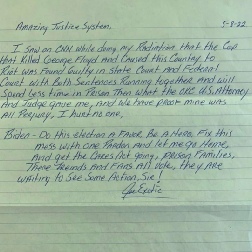 Amazing Justice System.
5-8-22
I Saw on CNN while doing my Radiation that the Cop
that Killed George Floyd and Caused this Country to
Riot was Found Guilty in State Court and Federal
Court with Both Sentences Running together and will
Spend less time in Prison Than what the OKC U.S. Attorney
And Judge gave me, And we have proof mine was
All Perjury, I hurt no one.
Biden - Do this election A Favor, Be A Hero, Fix this
mess with one Pardon And let me go Home
And get the
Prison Families,
These Friends and Fans All Vote, they ARE
waiting to See Some Action, Sir!
Joe Exotic